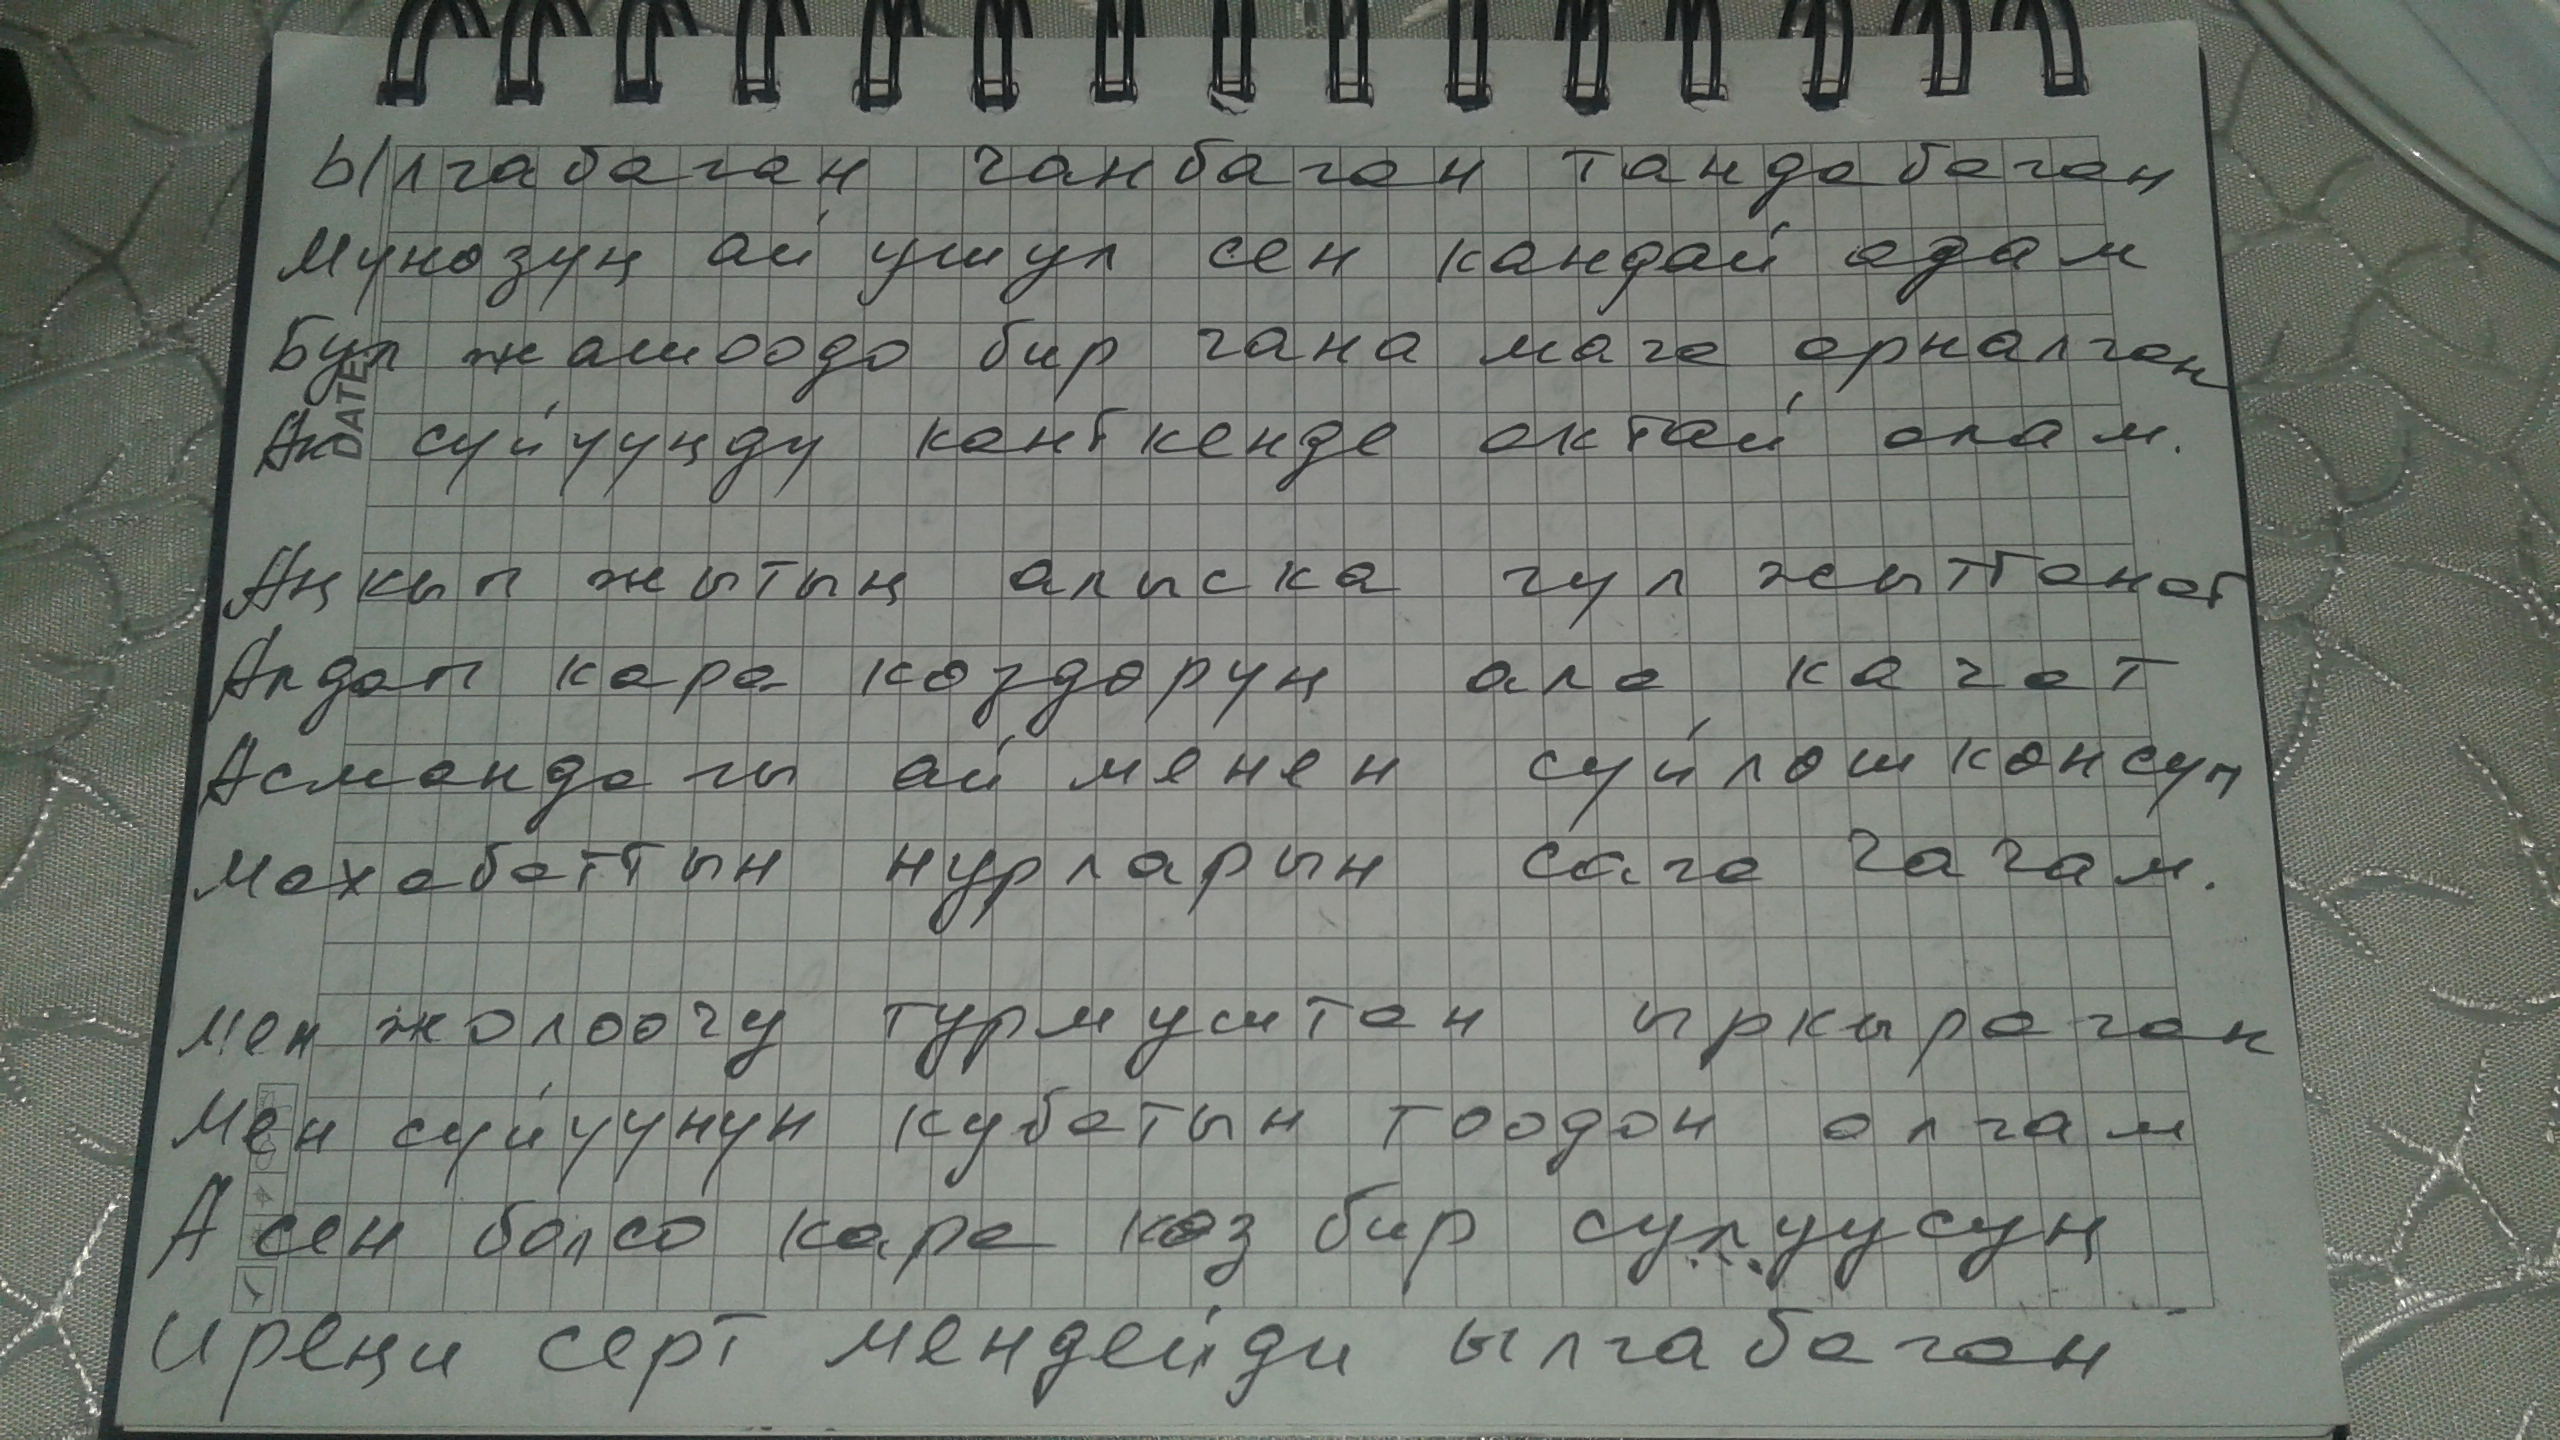 Ылгабаган чанбаган тандабаган
Мунозуң ай ушул сен кандай адам
Бул жашоодо бир гана мага арналган
DATE
Ак суйуунду канткенде октай алам.
Аңкып жытың алыска гул жыттанат
Алдап кара коздоруң ала качат
Асмандагы ай менен суйлошконсуп
Махабаттын нурларын сага чачам.
Мен жолоочу турмуштан ыркыраган
Мен суйуунун кубатын тоодон алгам
А сен болсо кара коз бир сулуусуң
Иреңи серт мендейди ылгабаган